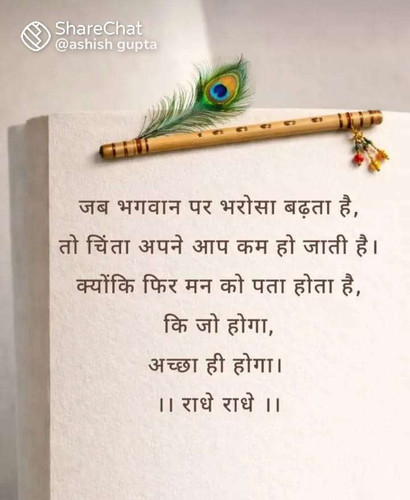 ShareChat
@ashish gupta
जब भगवान पर भरोसा बढ़ता है,
तो चिंता अपने आप कम हो जाती है।
क्योंकि फिर मन को पता होता है,
कि जो होगा,
अच्छा ही होगा।
।। राधे राधे ।।